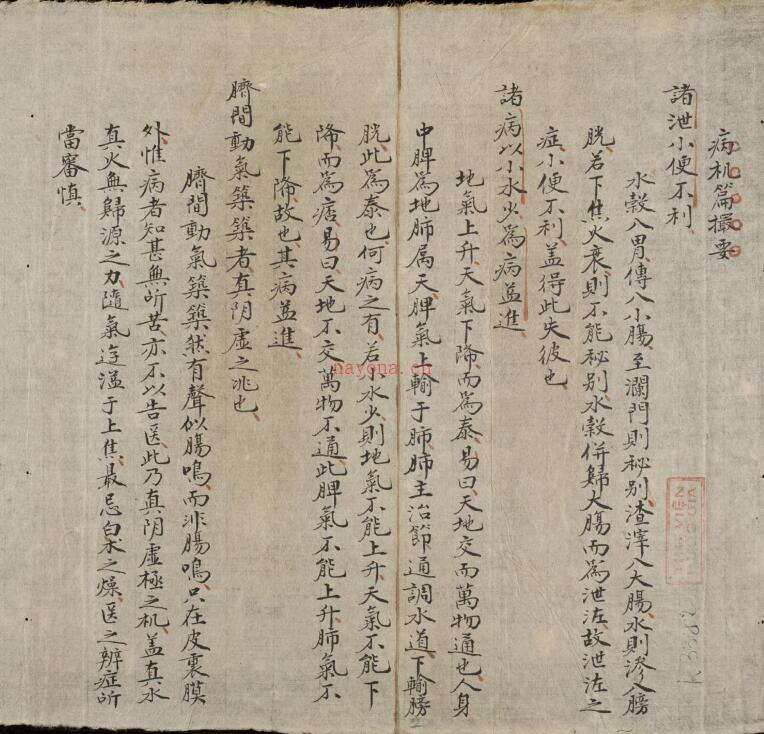 病机篇撮要
諸泄小便不利
水穀入胃傳入小腸至瀾門則秘別渣滓入大腸水則滲入膀
胱若下焦火衰則不能秘別水穀併歸大腸而爲泄泣故泄泣之
症小便不利盖得此失彼也
諸病以小水少爲病益進
地氣上升天氣下降而爲泰易曰天地交而萬物通也人身
中脾爲地肺属天脾氣上輸于肺肺主治節通調水道下輸膀
胱此爲泰也何病之有若小水少則地氣不能上升天氣不能下
降而爲痞易曰天地不交萬物不通此脾氣不能上升肺氣不
能下降故也其病益進
臍間動氣築築者真阴虚之兆也
臍間動氣築築然有聲似腸鳴而非腸鳴只在皮裏膜
外惟病者知甚無所苦亦不以告医此乃真阴虚極之机盖真水
真火無歸源之力隨氣迸溢于上焦最忌白朮之燥医之辨症所
當審慎
nayona.cn